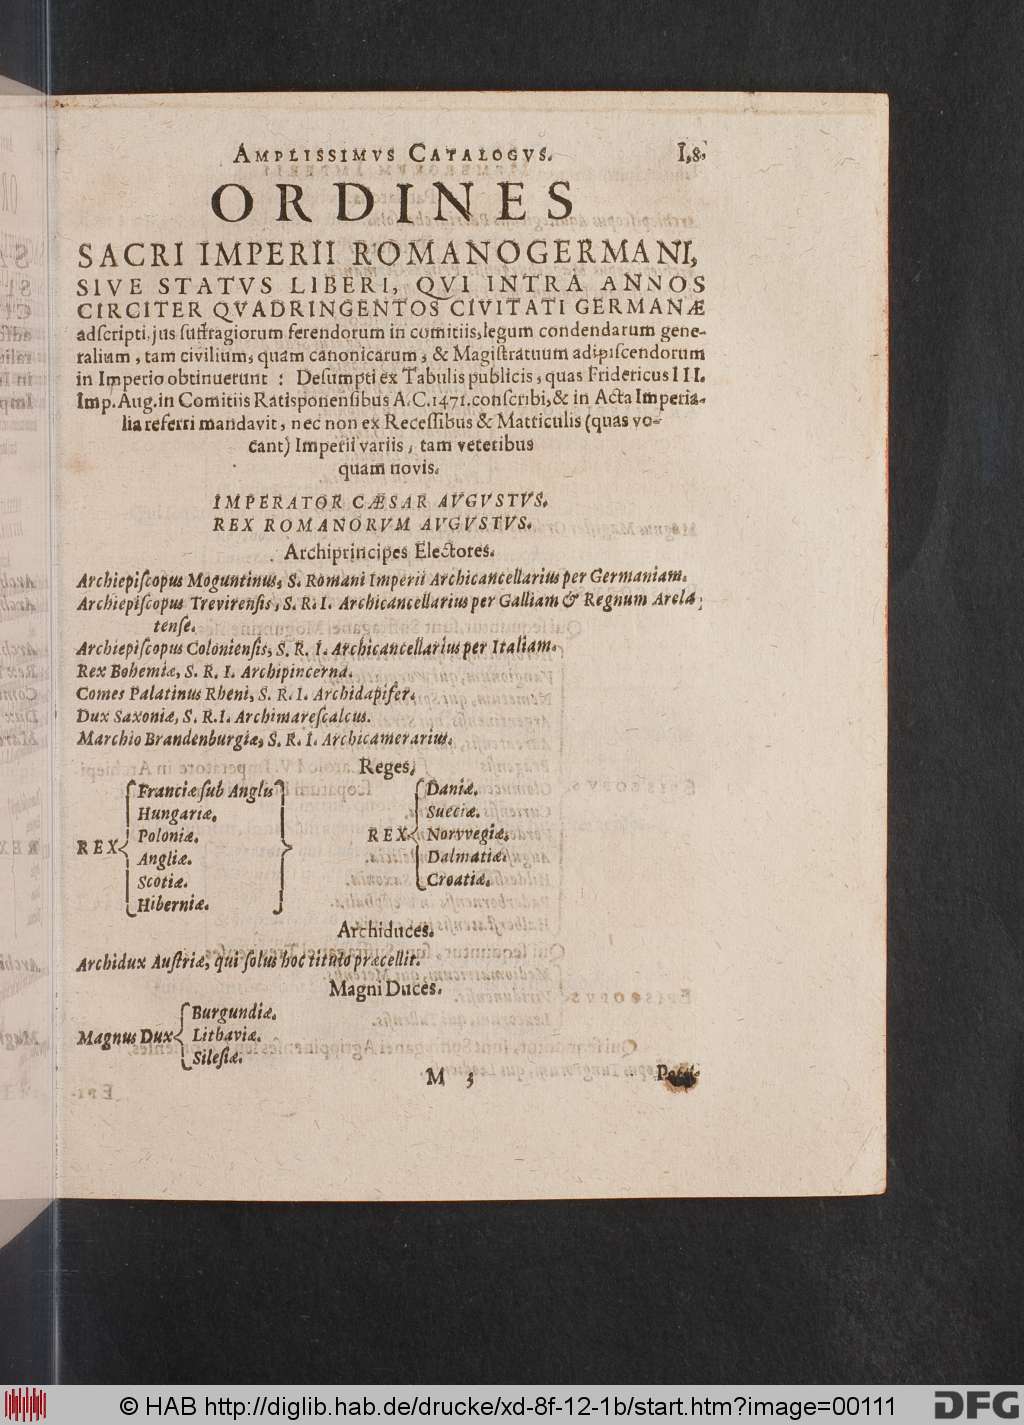 AMPLISSIMVS CATALOGVS. I,8,
ORDINES
SACRI IMPERII ROMANOGERMANI,
SIVE STATVS LIBERI, QVI INTRA ANNOS
CIRCITER QVADRINGENTOS CIVITATI GERMANÆ
adſcripti, jus ſuffragiorum ferendorum in comitiis, legum condendarum gene-
ralium, tam civilium, quam canonicarum, & Magiſtratuum adipiſcendorum
in Imperio obtinuerunt : Deſumpti ex Tabulis publicis, quas Fridericus III.
Imp. Aug. in Comitiis Ratisponenſibus A. C. 1471. conſcribi, & in Acta Imperia-
lia referri mandavit, nec non ex Receſſibus & Matriculis (quas vo-
cant) Imperii variis, tam veteribus
quam novis.
IMPERATOR CÆSAR AVGVSTVS.
REX ROMANORVM AVGVSTVS.
Archiprincipes Electores.
Archiepiſcopus Moguntinus, S. Romani Imperii Archicancellarius per Germaniam.
Archiepiſcopus Trevirenſis, S. R. I. Archicancellarius per Galliam & Regnum Arela-
tenſe.
Archiepiſcopus Colonienſis, S. R. I. Archicancellarius per Italiam.
Rex Bohemiæ, S. R. I. Archipincerna.
Comes Palatinus Rheni, S. R. I. Archidapifer.
Dux Saxoniæ, S. R. I. Archimareſcalcus.
Marchio Brandenburgiæ, S. R. I. Archicamerarius.
Reges.
REX
Franciæ ſub Anglis
Hungariæ.
Poloniæ.
Angliæ.
Scotiæ.
Hiberniæ.
REX
Daniæ.
Sueciæ.
Norvvegiæ.
Dalmatiæ.
Croatiæ.
Archiduces.
Archidux Auſtriæ, qui ſolus hoc titulo præcellit.
Magni Duces.
Magnus Dux
Burgundiæ.
Lithaviæ.
Sileſiæ.
M 3
© HAB http://diglib.hab.de/drucke/xd-8f-12-1b/start.htm?image=00111
DFG